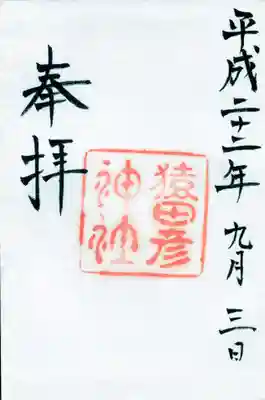 平成二十二年九月三日
猿田彦
神社
奉拝